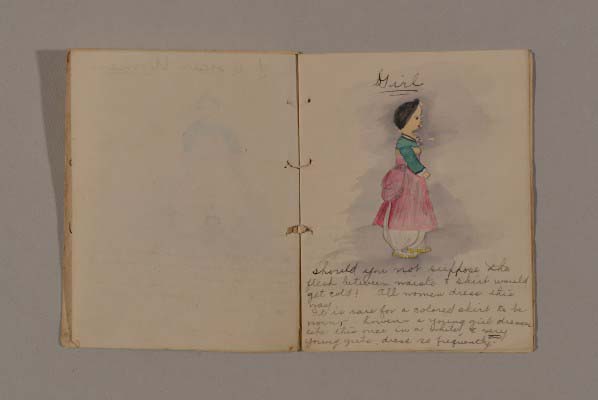 Girl
Should you not suppose the
flesh between waists & skirt would
get cold! All women dress this
way
It is rare for a colored skirt to be
worn, a young girl dresses
like this once in a while, & very
young girls dress so frequently.